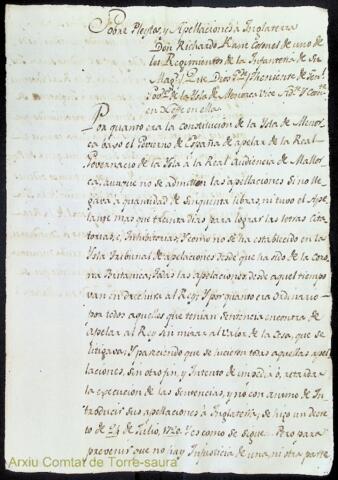 Sobre Pleytos, y Apellaciones à Inglaterra
Don Richardo Kane Coronel de uno de
los Regimientos de la Infanteria de Su
Magd. (que Dios gde) Theniente de
de la Ysla de Menorca Vice
en Xeffe en ella.
Por quanto era la constitucion de la Ysla de Menor
ca baxo el Govierno de España de apelar de la Real
Governacio de la Ysla à la Real Audiencia de Mallor
ca, aunque no se admitian las apellaciones si no lle
gava a quantidad de sinquenta libras, ni tuvo el Ape
lante mas que trainta dias para lograr las letras Cita
torias, è Inhibitorias, Y como no se ha establecido en la
Ysla Tribunal de apelaciones desde que ha sido de la Coro
na Britanica; todas las apelaciones desde aquel tiempo
van en drechura al Rey; Y por quanto era Ordinario
por todos aquellos que tenian Sentencia encontra de
apelar al Rey sin mirar al Valor de la Cosa, que se
litigava; Y pareciendo que se hicieron todas aquellas apel
laciones, sin otro fin, y Intento de impedir ò, retardar
la execucion de las Sentencias, y no con animo de In
troducir sus apellaciones à Inglaterra, se hizo un decre
to de 24 de Julio, 1720. y es como se sigue. Pero para
prevenir que no hay Injusticia de una, ni otra parte
Arxiu Comtat de Torre-saura